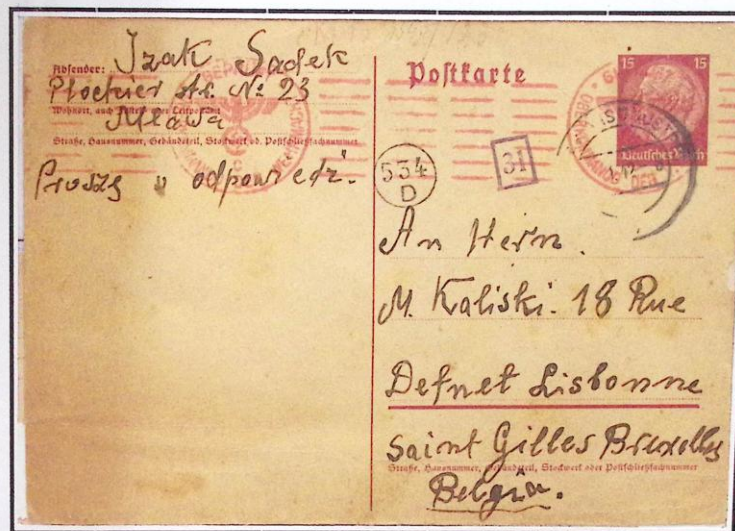 Absender: Izak Sadek
Plockier str. № 23
Wohnort, auch Zustell- oder Leitpostamt
Mława
Straße, Hausnummer, Gebäudeteil, Stockwerk od. Postschließfachnummer
Proszę o odpowiedź.
Postkarte
15 15
Deutsches Reich
534
D
31
An Hern.
M. Kaliski. 18 Rue
Defnet Lisbonne
Saint Gilles Bruxelles
Straße, Hausnummer, Gebäudeteil, Stockwerk oder Postschließfachnummer
Belgia.